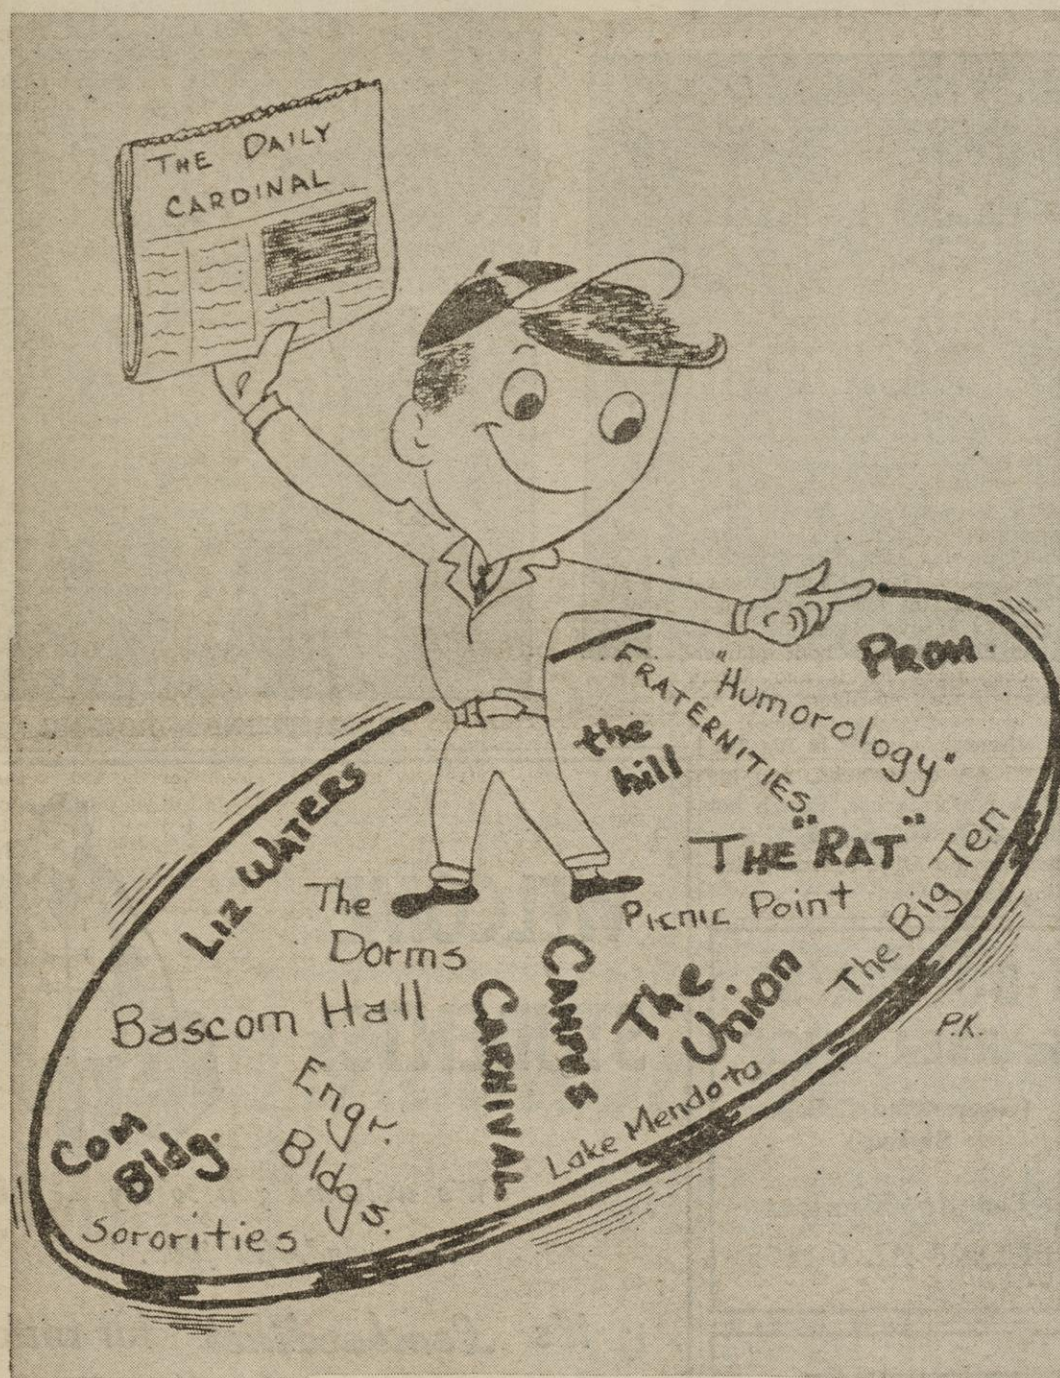 THE DAILY
CARDINAL
PROM.
"Humorology"
FRATERNITIES
the
hill
THE "RAT"
Picnic Point
The Big Ten
LIZ WATERS
The
Dorms
Bascom Hall
CAMPUS
CARNIVAL
The
Union
Lake Mendota
P.K.
Engr.
Bldgs.
Com
Bldg.
Sororities